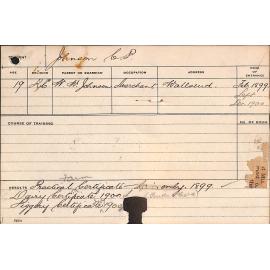 Johnson C. P.
AGE RELIGION PARENT OR GUARDIAN OCCUPATION ADDRESS DATE OF ENTRANCE
19 W. Johnson Merchant Feby 1899
Sept
Jan 1900
COURSE OF TRAINING
Farm
RESULTS Practical Certificate only. 1899.
Dairy Certificate 1900
Piggery Certificate 1900